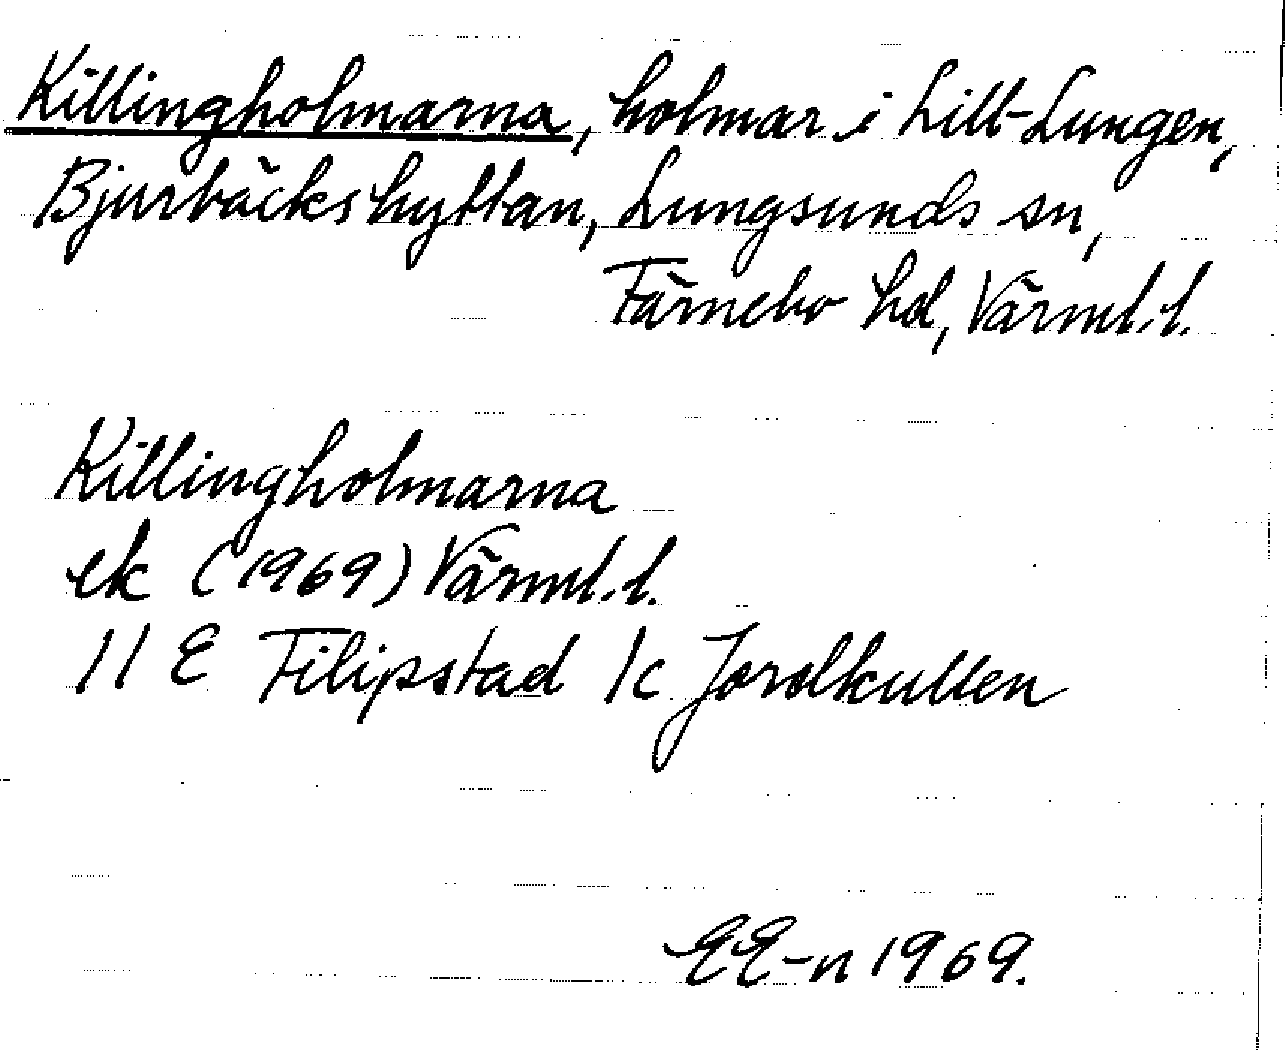 Killingholmarna, holmar i Lill-Lungen,
Bjurbäckshyttan, Lungsunds sn,
Färnebo hd, Värml. l.
Killingholmarna
ek (1969) Värml. l.
11 E Filipstad 1c Jordkullen
EE-n 1969.